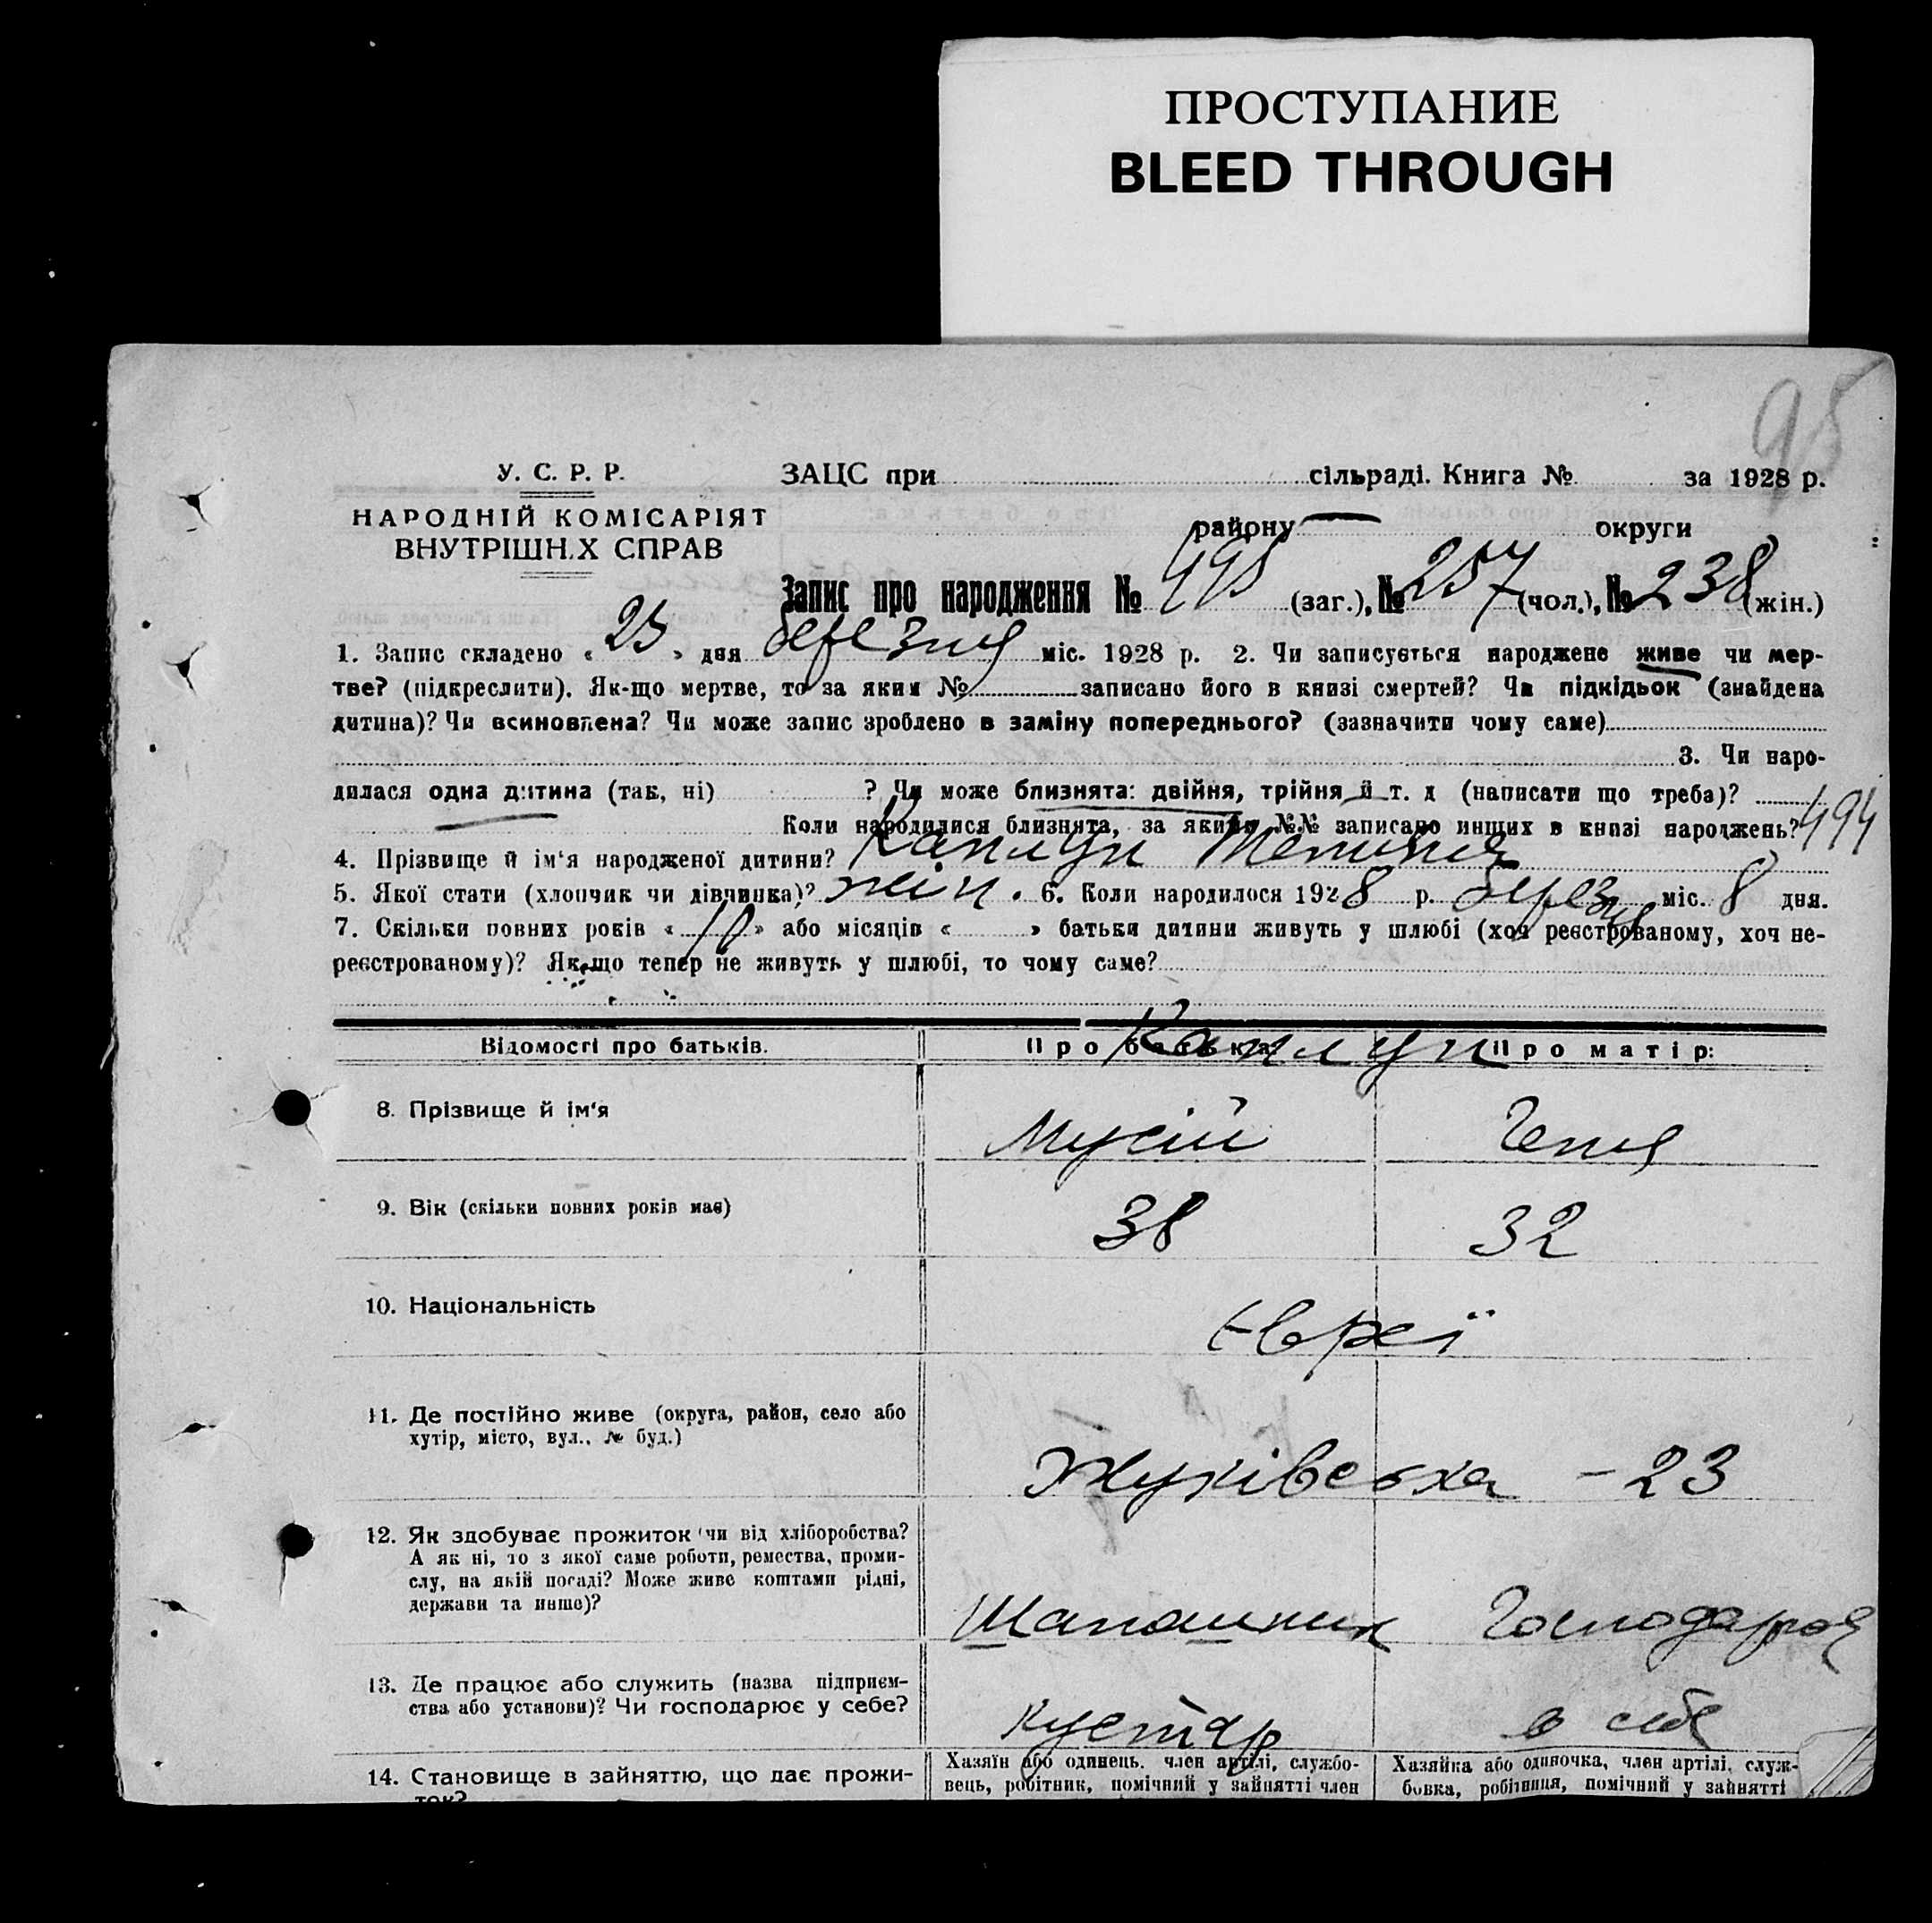 ПРОСТУПАНИЕ
BLEED THROUGH
95
У. С. Р. Р.
НАРОДНІЙ КОМІСАРІЯТ
ВНУТРІШН.Х СПРАВ
ЗАЦС при сільраді. Книга № за 1928 р.
району — округи
Запис про народження № 495 (заг.), № 257 (чол.), № 238 (жін.)
1. Запис складено « 25 » дня березня міс. 1928 р. 2. Чи записується народжене живе чи мер-
тве? (підкреслити). Як-що мертве, то за яким № записано його в книзі смертей? Чи підкідьок (знайдена
дитина)? Чи всиновлена? Чи може запис зроблено в заміну попереднього? (зазначити чому саме)
3. Чи наро-
дилася одна дитина (так, ні) ? Чи може близнята: двійня, трійня й т. д (написати що треба)?
Коли народилися близнята, за якими №№ записано инщих в книзі народжень? 494
4. Прізвище й ім'я народженої дитини? Каплун
5. Якої стати (хлопчик чи дівчинка)? жін. 6. Коли народилося 1928 р. березня міс. 8 дня.
7. Скільки повних років « 10 » або місяців « » батьки дитини живуть у шлюбі (хоч реєстрованому, хоч не-
реєстрованому)? Як-що тепер не живуть у шлюбі, то чому саме?
Відомості про батьків. Про батька: Про матір:
Каплун
8. Прізвище й ім'я Мусій Геня
9. Вік (скільки повних років має) 38 32
10. Національність Євреї
11. Де постійно живе (округа, район, село або
хутір, місто, вул., № буд.)
Жуківська - 23
12. Як здобуває прожиток (чи від хліборобства?
А як ні, то з якої саме роботи, ремества, проми-
слу, на якій посаді? Може живе коштами рідні,
держави та инше)?
Шапошник Господарює
13. Де працює або служить (назва підприєм-
ства або установи)? Чи господарює у себе?
Кустар в себе
14. Становище в зайняттю, що дає прожи-
ток?
Хазяїн або одинець, член артілі, службо-
вець, робітник, помічний у зайнятті член
Хазяйка або одиночка, член артілі, служ-
бовка, робітниця, помічний у зайнятті